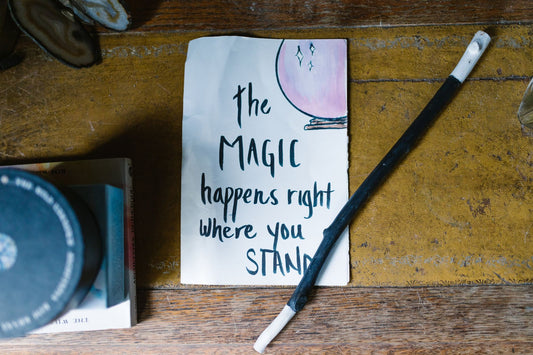 the
MAGIC
happens right
where you
STAND